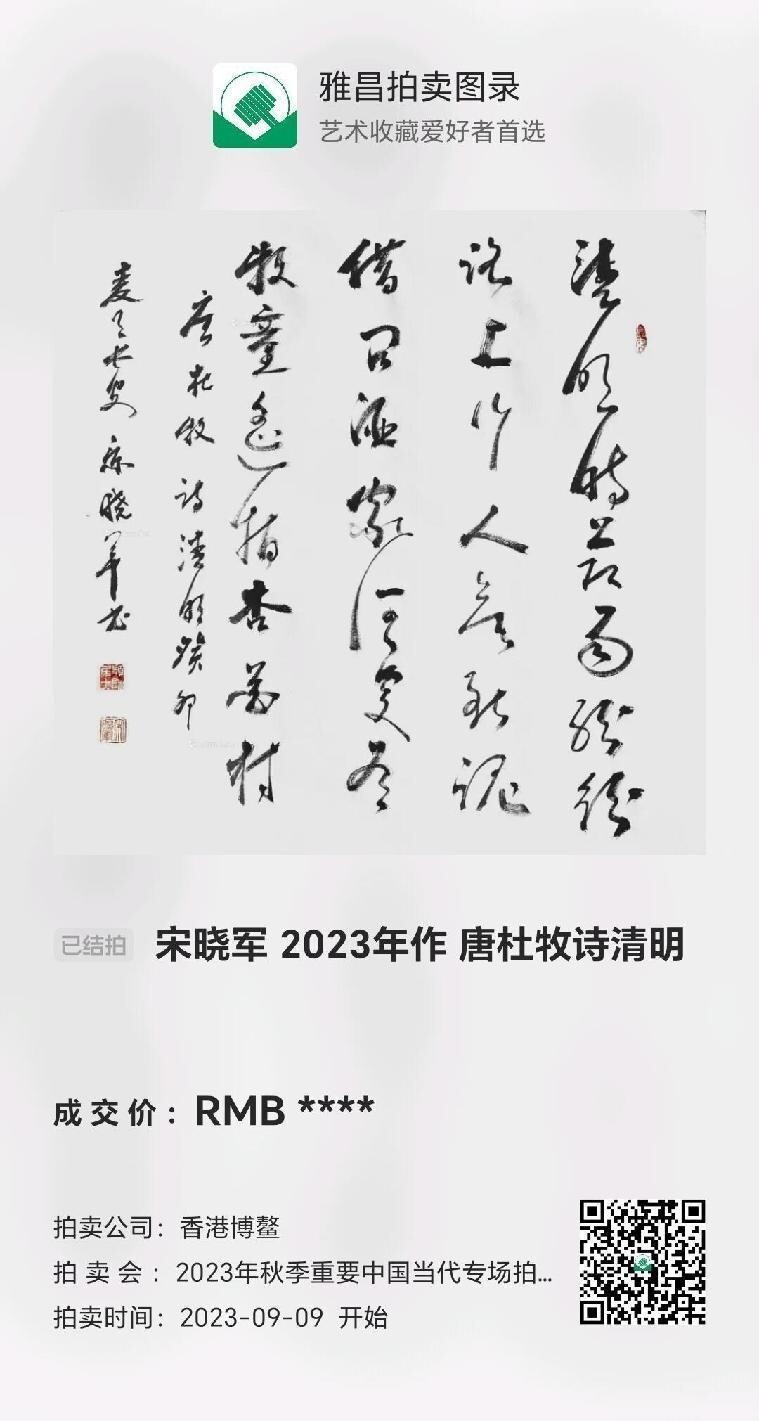 雅昌拍卖图录
艺术收藏爱好者首选
清明时节雨纷纷
路上行人欲断魂
借问酒家何处有
牧童遥指杏花村
唐杜牧诗清明癸卯
宋晓军书
已结拍 宋晓军 2023年作 唐杜牧诗清明
成交价：RMB ****
拍卖公司：香港博鳌
拍卖会：2023年秋季重要中国当代专场拍...
拍卖时间：2023-09-09 开始